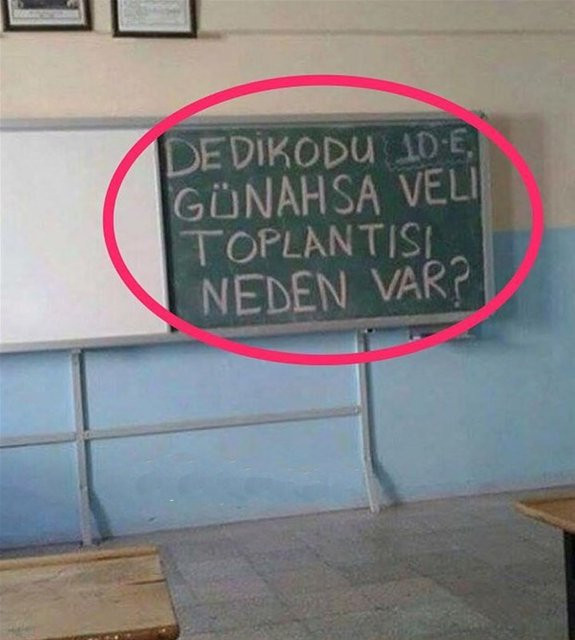 DEDİKODU 10-E
GÜNAHSA VELİ
TOPLANTISI
NEDEN VAR?